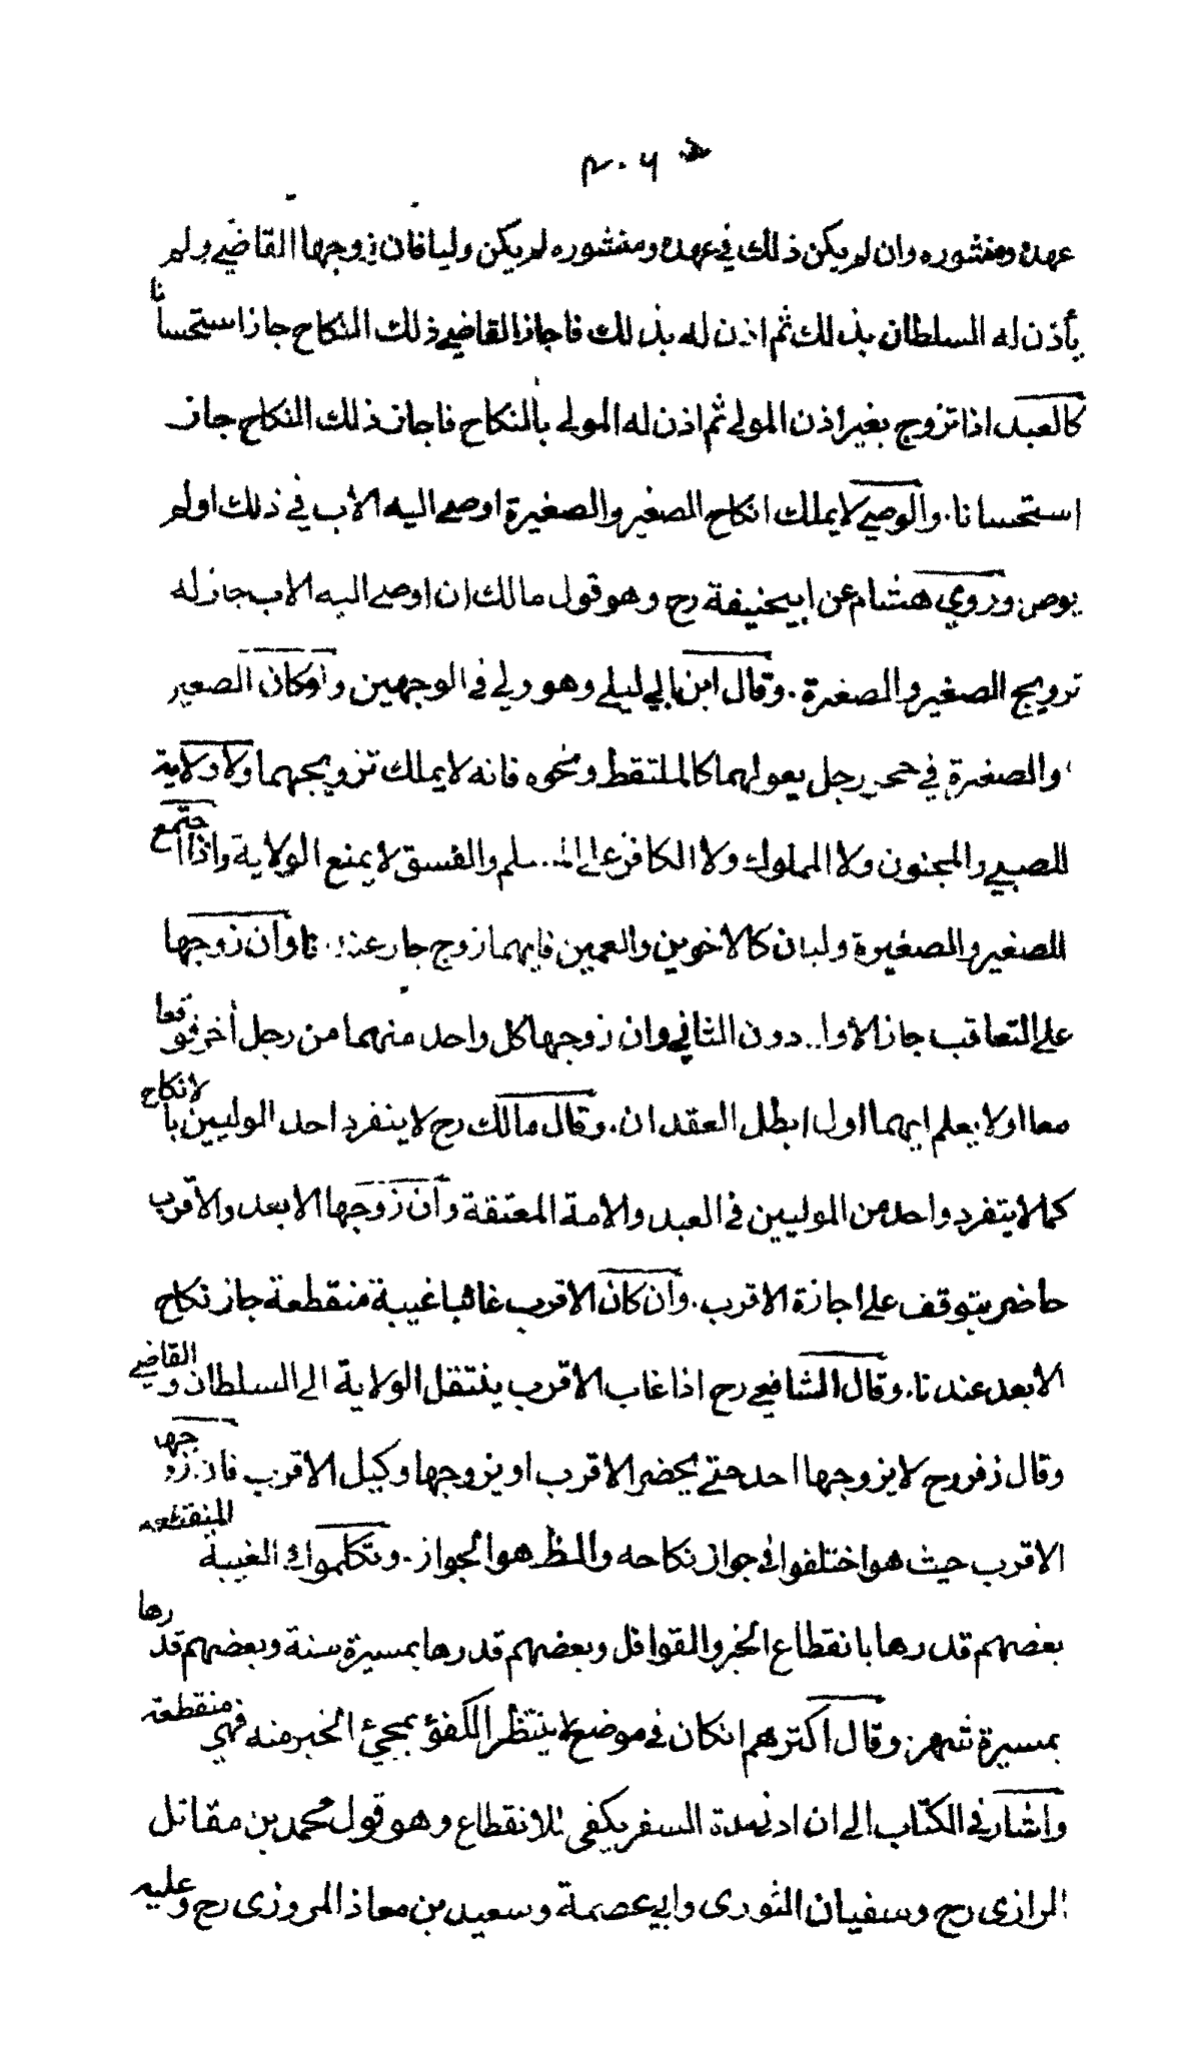 ٢٠٦
عهده ومنشوره وان لم يكن ذلك في عهده ومنشوره لم يكن وليا فان زوجها القاضي ولم
يأذن له السلطان بذلك ثم اذن له بذلك فاجاز القاضي ذلك النكاح جاز استحسانا
كالعبد اذا تزوج بغير اذن المولي ثم اذن له المولي بالنكاح فاجاز ذلك النكاح جاز
استحسانا . والوصي لا يملك انكاح الصغير والصغيرة اوصي اليه الأب في ذلك اولم
يوص . وروي هشام عن ابيحنيفة رح وهو قول مالك ان اوصي اليه الاب جاز له
تزويج الصغير والصغيرة . وقال ابن ابي ليلي وهو ولي في الوجهين ولوكان الصغير
والصغيرة في حجر رجل يعولهما كالملتقط ونحوه فانه لا يملك تزويجهما ولا ولاية
للصبي والمجنون ولا المملوك ولا الكافر علي المسلم والفسق لا يمنع الولاية واذا اجتمع
للصغير والصغيرة وليان كالاخوين والعمين فايهما زوج جاز عندنا وان زوجها
علي التعاقب جاز الأول دون الثاني وان زوجها كل واحد منهما من رجل أخر فوقعا
معا اولا يعلم ايهما اول ابطل العقدان . وقال مالك رح لا ينفرد احد الوليين بالانكاح
كما لا يتفرد واحد من الموليين في العبد والامة المعتقة وان زوجها الابعد والاقرب
حاضر يتوقف علي اجازة الاقرب . وان كان الاقرب غائبا غيبة منقطعة جاز نكاح
الأبعد عندنا . وقال الشافعي رح اذا غاب الاقرب ينتقل الولاية الي السلطان والقاضي
وقال زفر رح لا يزوجها احد حتي يحضر الاقرب او يزوجها وكيل الاقرب فان زوجها
الاقرب حيث هو اختلفوا في جواز نكاحه والظ هو الجواز . وتكلموا في الغيبة المنقطعة
بعضهم قدرها بانقطاع الخبر والقوافل وبعضهم قدرها بمسيرة سنة وبعضهم قدرها
بمسيرة شهر . وقال اكثرهم انكان في موضع لا ينتظر الكفؤ بمجئ الخبر منه فهي منقطعة
واشار في الكتاب الي ان ادني مدة السفر يكفي للانقطاع وهو قول محمد بن مقاتل
الرازي رح وسفيان الثوري وابي عصمة وسعيد بن معاذ المروزي رح وعليه